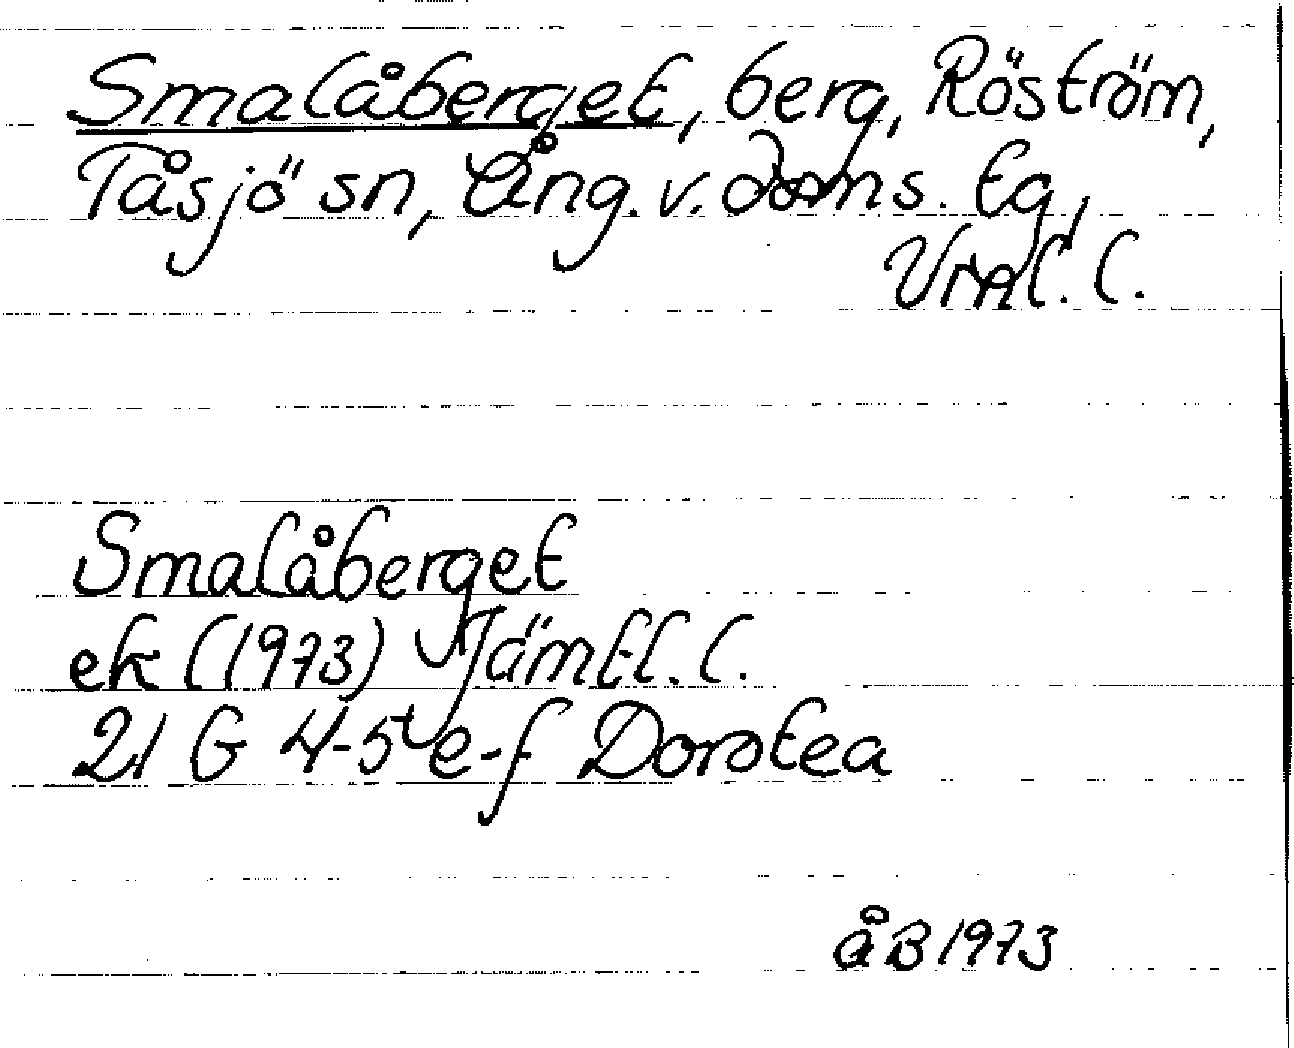 Smalåberget, berg, Röström,
Tåsjö sn, Ång. v. doms. tg,
Vrnl. l.
Smalåberget
ek (1973) Jämtl. l.
21 G 4-5 e-f Dorotea
åB 1973